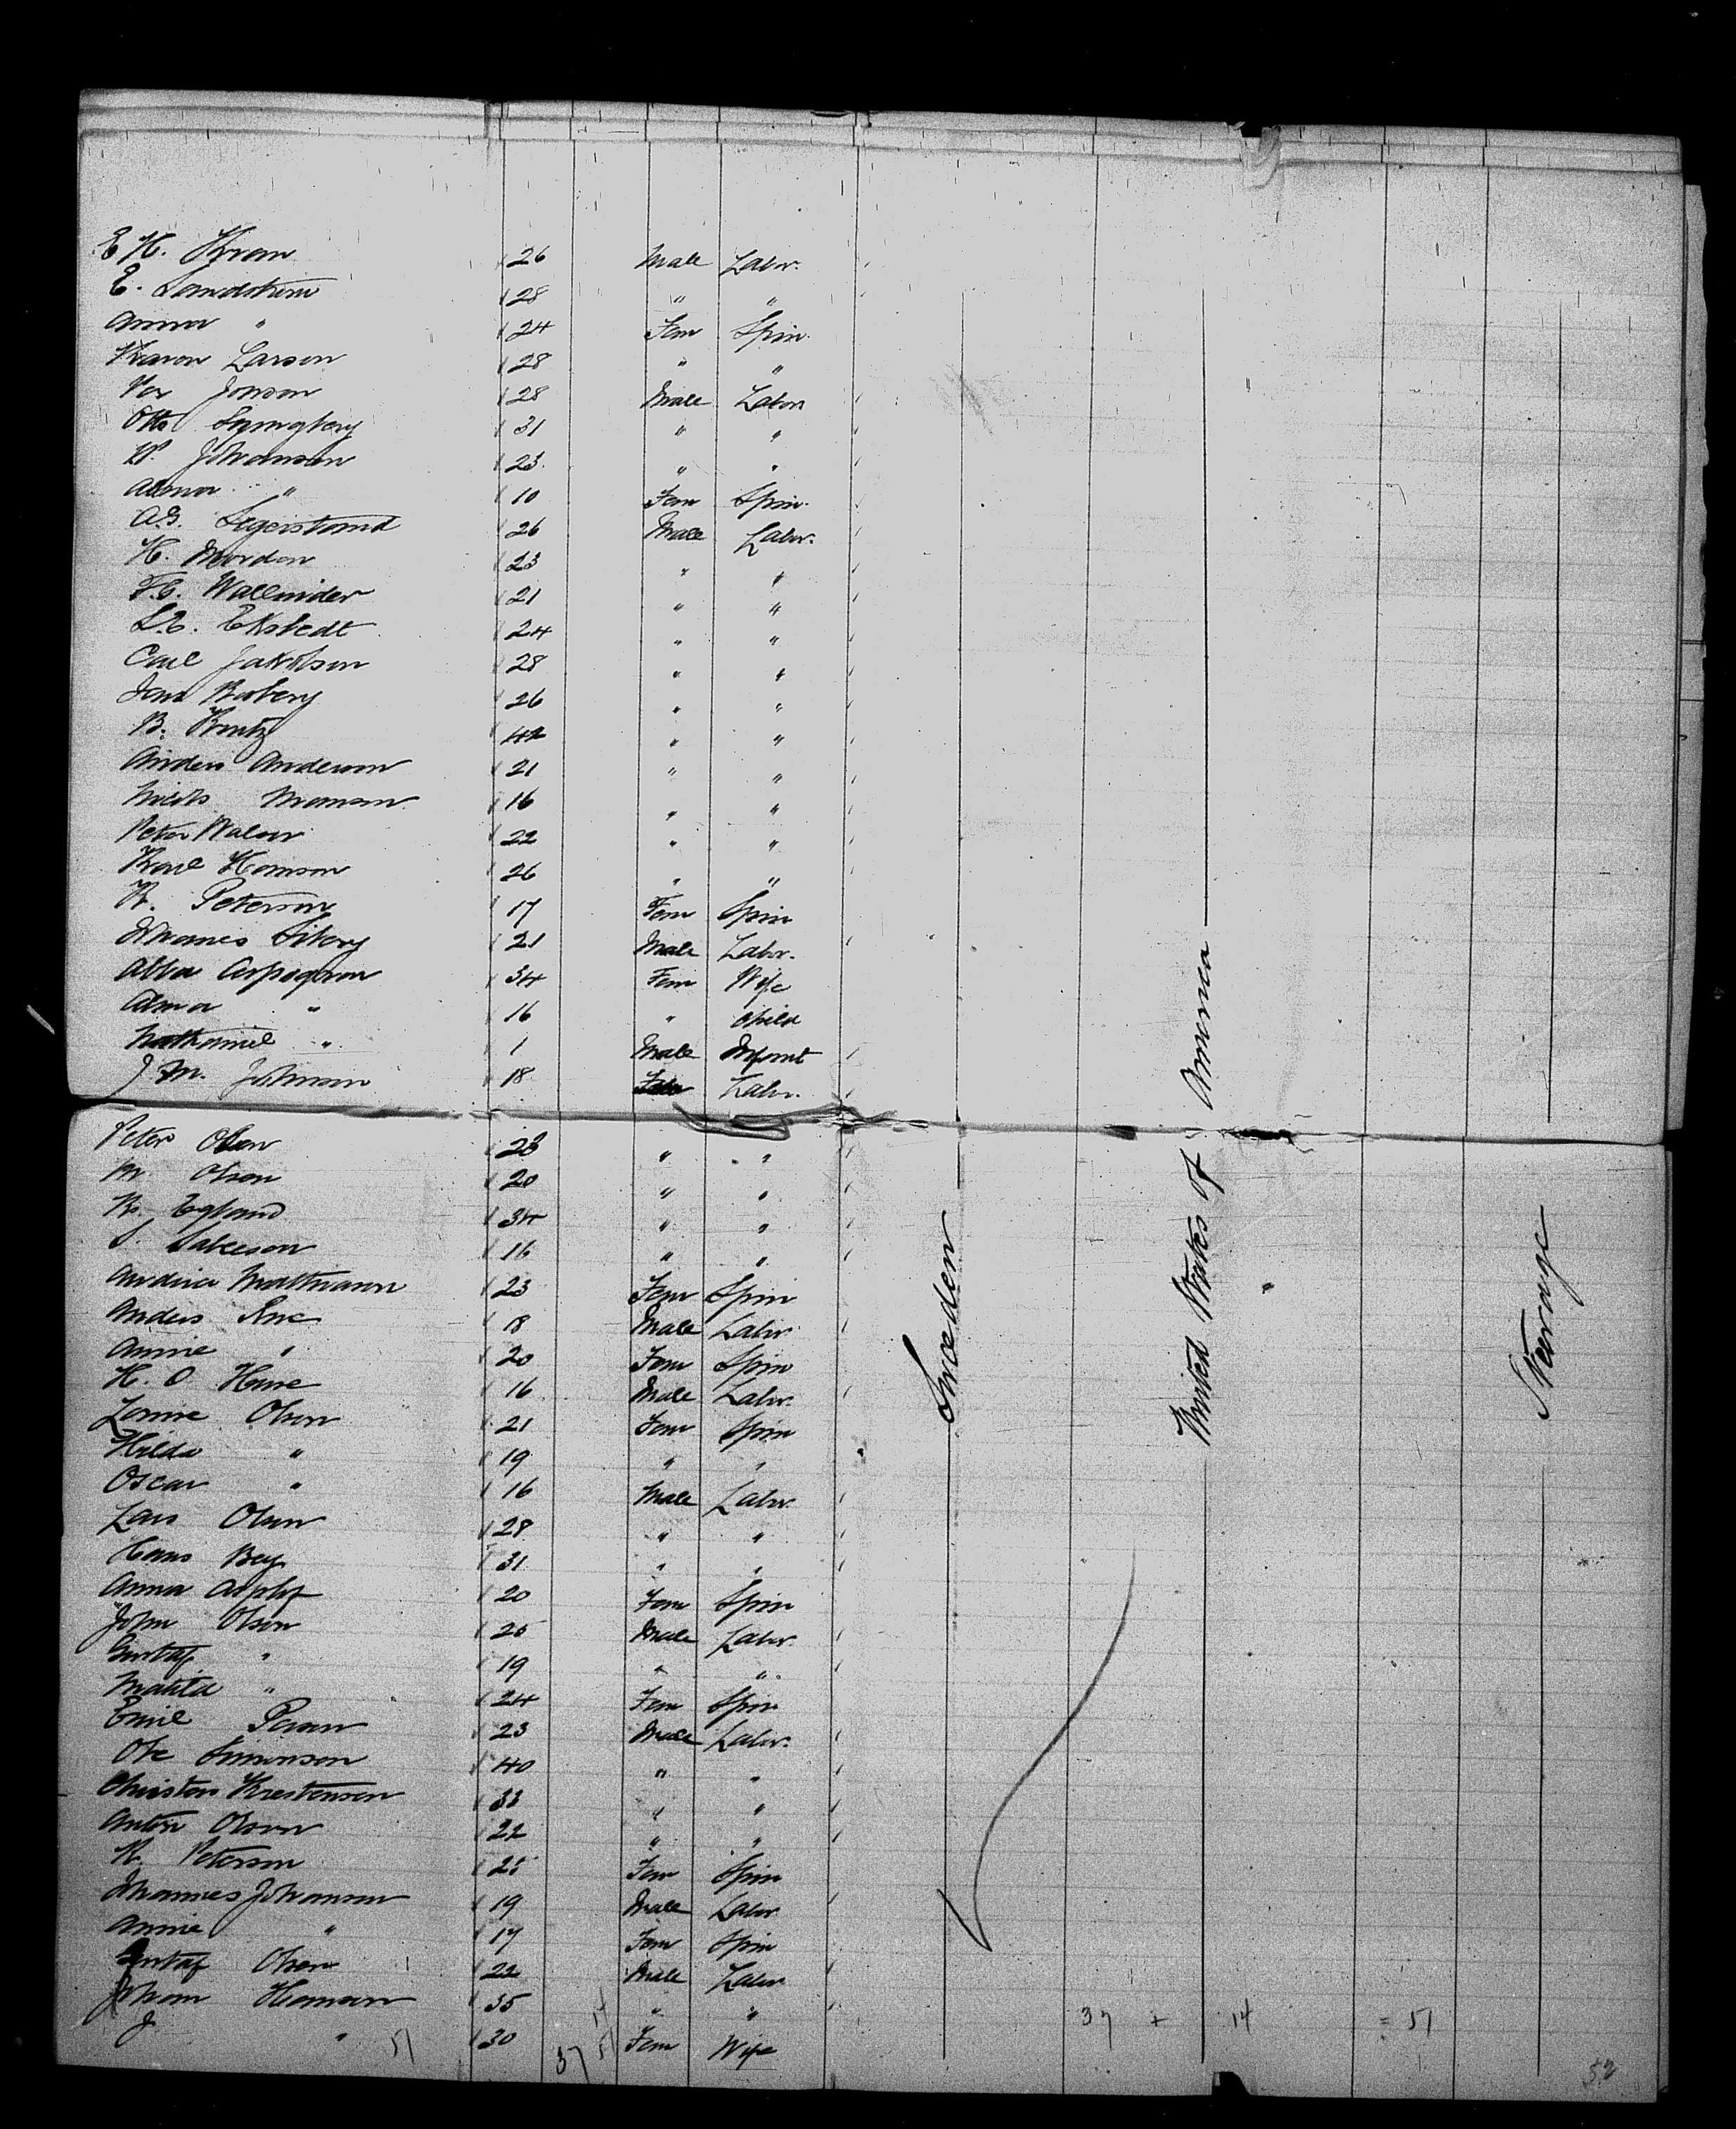 E H. Kvan 26 Male Labr.
E. Sandstrom 28 " "
Anna " 24 Fem Spin.
Karon Larson 28 " "
Per Jonson 28 Male Labr
Otto Ljungberg 31 " "
P. Johanson 23 " "
Alma " 10 Fem Spin.
A.G. Segerstrand 26 Male Labr.
H. Morden 23 " "
F.E. Wallinder 21 " "
L.E. Ekstedt 24 " "
Carl Jakobson 28 " "
26 " "
B. Kmtz 42 " "
Anders Anderson 21 " "
Nils Monson 16 " "
Peter 22 " "
Karl Hanson 26 " "
K. Peterson 17 Fem Spin
Johanes Siberg 21 Male Labr.
Alba 34 Fem Wife
Alma " 16 " Child
Nathaniel " 1 Male Infant
J. M. Johnson 18 Labr.
Peter Olson 23 " "
M Olson 20 " "
34 " "
S. 16 " "
Andina Mattson 23 Fem Spin
Anders 18 Male Labr
Annie " 20 Fem Spin
H. O Hane 16 Male Labr.
Louise Olson 21 Fem Spin
Hilda " 19 " "
Oscar " 16 Male Labr.
Lars Olson 28 " "
Hans Berg 31 " "
Anna 20 Fem Spin
John Olson 25 Male Labr
Gustaf " 19 " "
Matilda " 24 Fem Spin
Emil Person 23 Male Labr.
Ole Simonson 40 " "
Christen Kristenson 33 " "
Anton Olson 22 " "
K. Peterson 25 Fem Spin
Johannes Johanson 19 Male Labr
Annie " 17 Fem Spin
Gustaf Olson 22 Male Labr
Johan Hanson 35 " "
J " 30 Fem Wife
Sweden
United States of America
Steerage
37 + 14 = 51
51
37
14
51
52